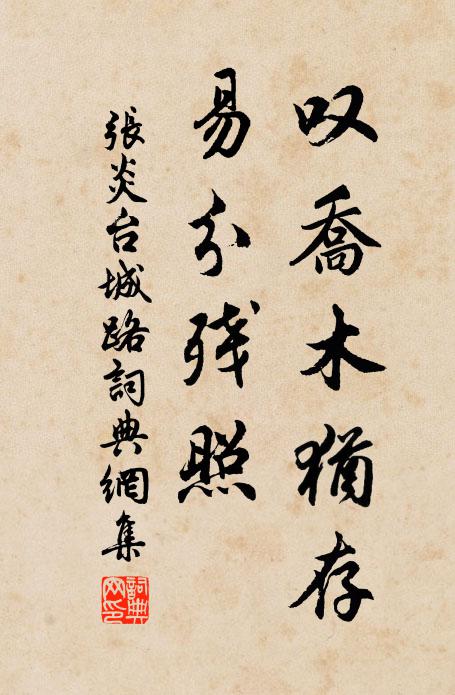 叹喬木猶存
易分残照
張炎台城路詞典網集
詞典
网印